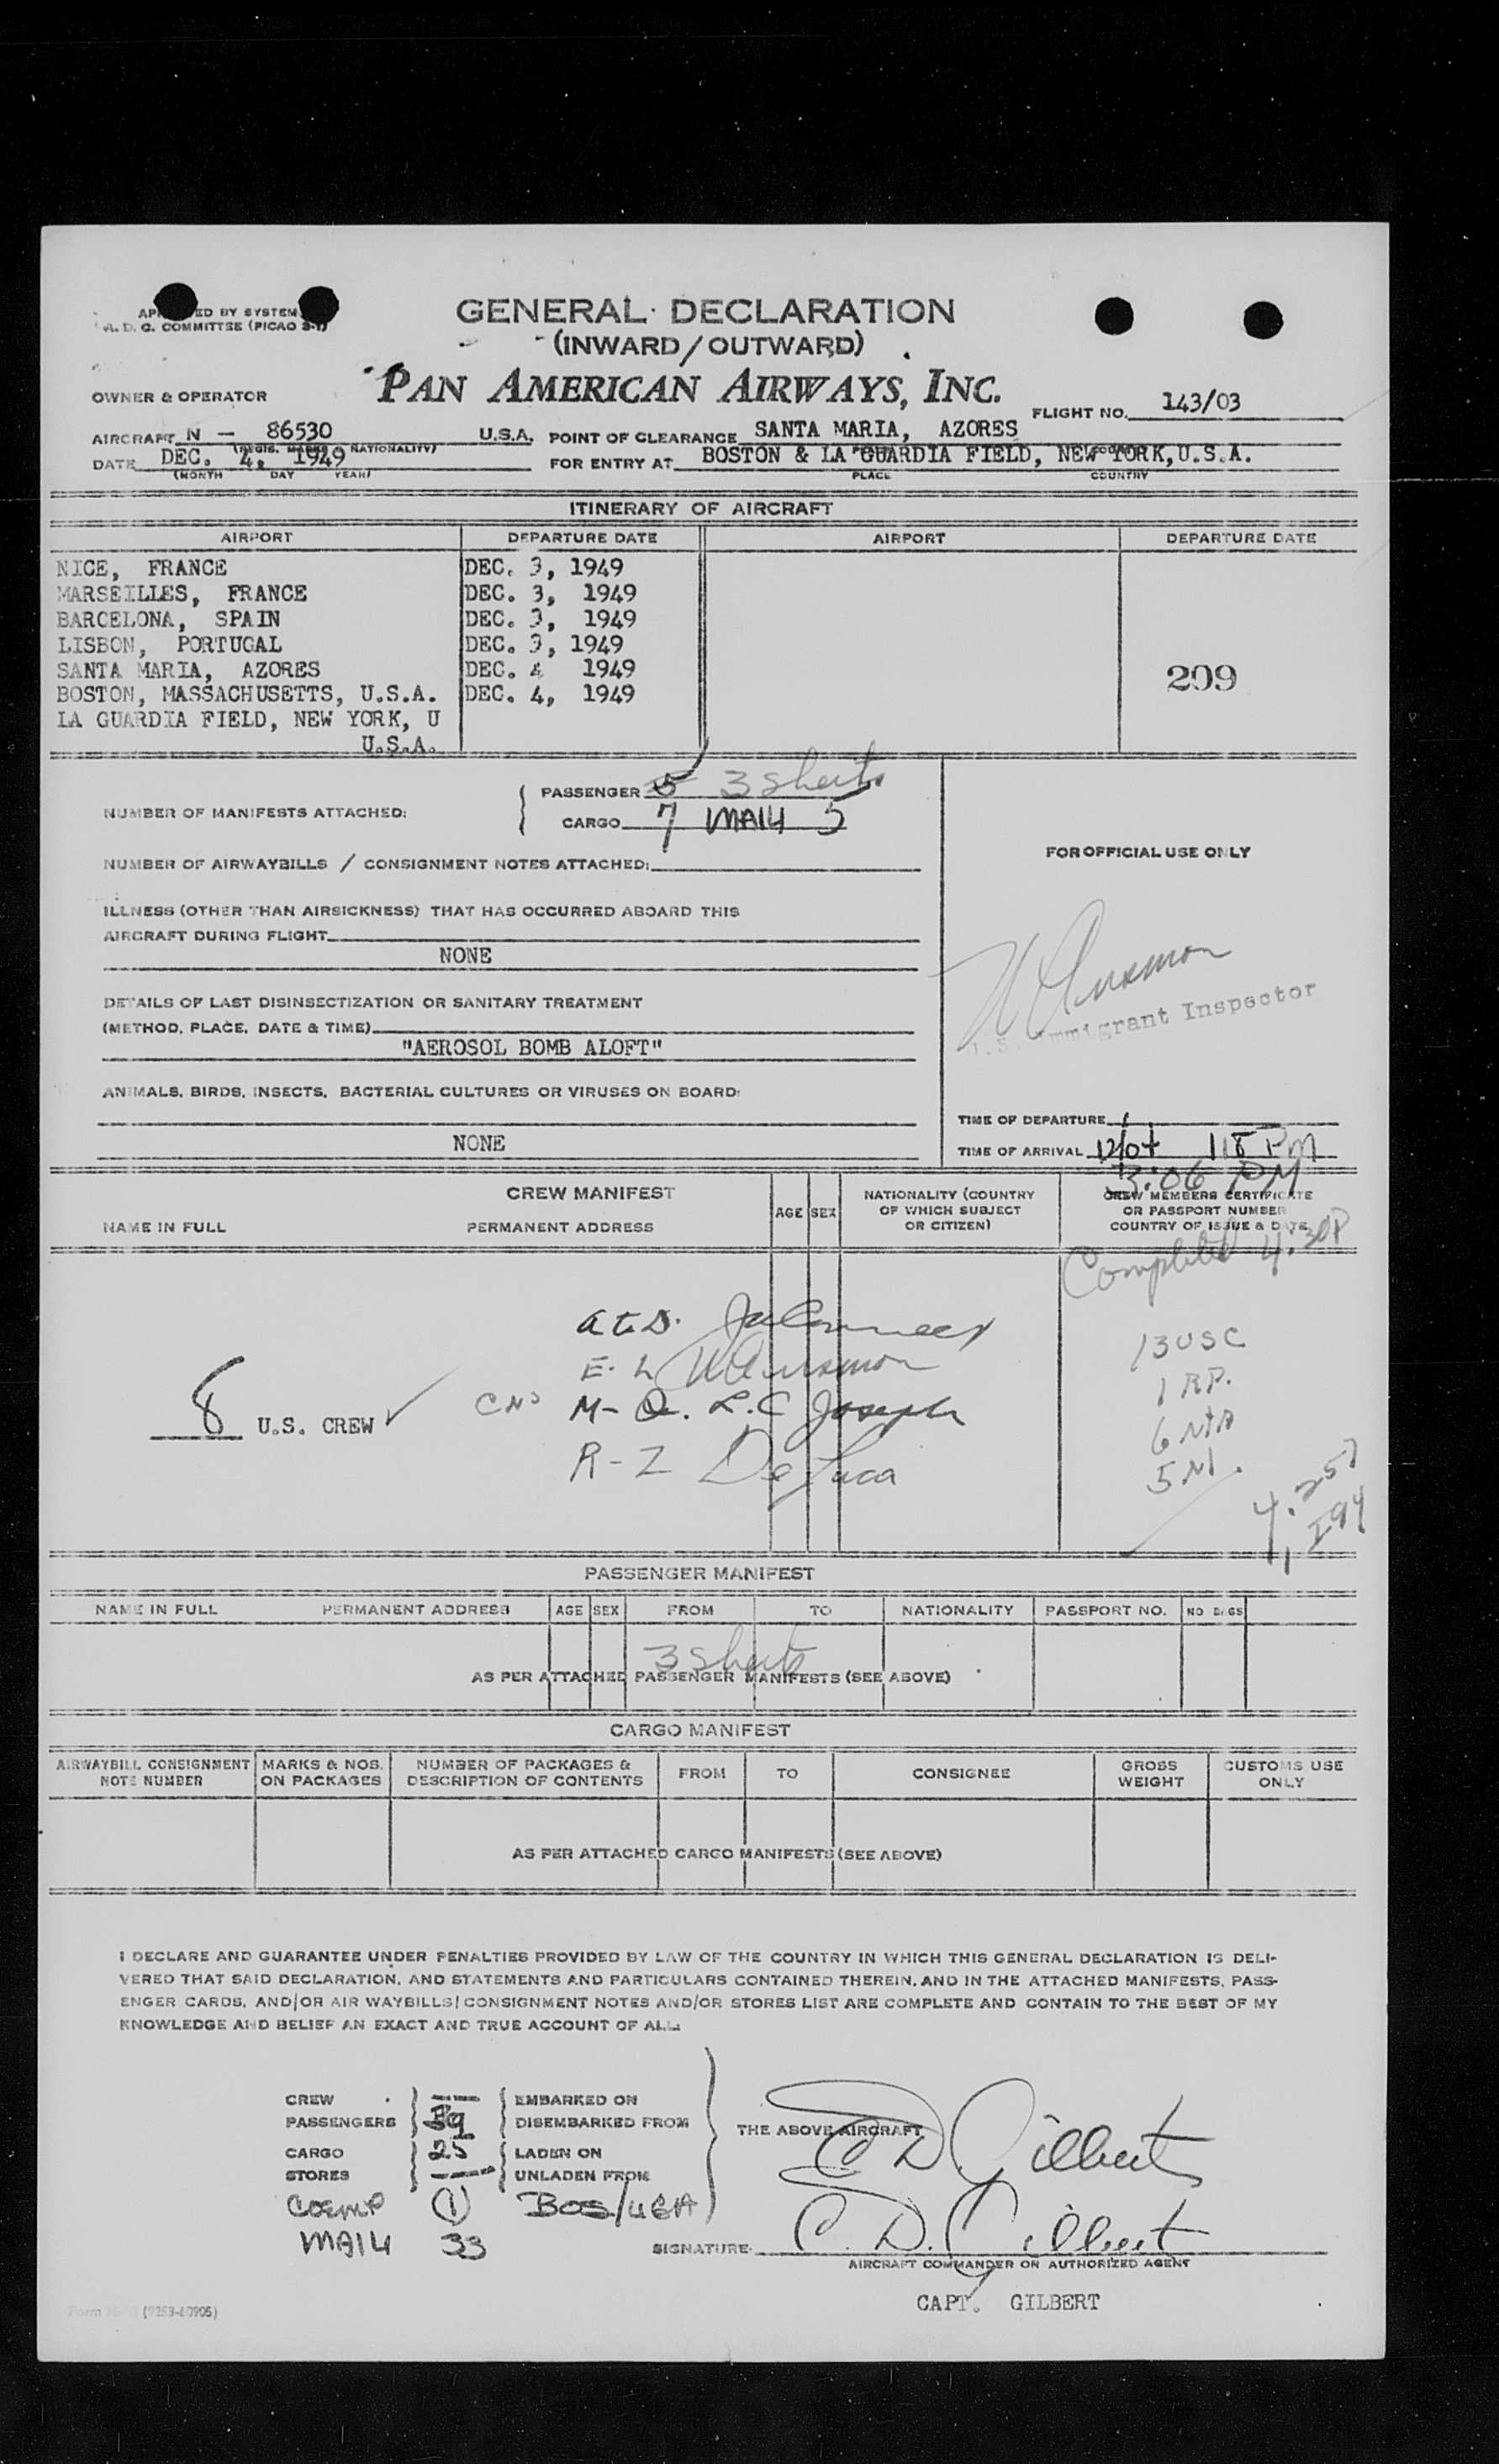 GENERAL DECLARATION
(INWARD/OUTWARD)
ED BY SYSTEM
A. D. C. COMMITTEE (PICAO
OWNER & OPERATOR PAN AMERICAN AIRWAYS, INC.
FLIGHT NO. 143/03
AIRCRAFT N - 86530 U.S.A. POINT OF CLEARANCE SANTA MARIA, AZORES
(REGIS. MARKS NATIONALITY)
DATE DEC. 4, 1949 FOR ENTRY AT BOSTON & LA GUARDIA FIELD, NEW YORK, U.S.A.
(MONTH DAY YEAR) PLACE COUNTRY
ITINERARY OF AIRCRAFT
AIRPORT DEPARTURE DATE AIRPORT DEPARTURE DATE
NICE, FRANCE DEC. 3, 1949
MARSEILLES, FRANCE DEC. 3, 1949
BARCELONA, SPAIN DEC. 3, 1949
LISBON, PORTUGAL DEC. 3, 1949
SANTA MARIA, AZORES DEC. 4 1949
209
BOSTON, MASSACHUSETTS, U.S.A. DEC. 4, 1949
LA GUARDIA FIELD, NEW YORK, U
U.S.A.
NUMBER OF MANIFESTS ATTACHED:
PASSENGER 5 3 sheets
CARGO 7 MAIL 5
NUMBER OF AIRWAYBILLS / CONSIGNMENT NOTES ATTACHED:
FOR OFFICIAL USE ONLY
ILLNESS (OTHER THAN AIRSICKNESS) THAT HAS OCCURRED ABOARD THIS
AIRCRAFT DURING FLIGHT
NONE
DETAILS OF LAST DISINSECTIZATION OR SANITARY TREATMENT
(METHOD, PLACE, DATE & TIME)
"AEROSOL BOMB ALOFT"
U.S. Immigrant Inspector
ANIMALS, BIRDS, INSECTS, BACTERIAL CULTURES OR VIRUSES ON BOARD:
NONE
TIME OF DEPARTURE
TIME OF ARRIVAL 12/04 118 PM
3:06 PM
CREW MANIFEST
NAME IN FULL PERMANENT ADDRESS AGE SEX NATIONALITY (COUNTRY OF WHICH SUBJECT OR CITIZEN) CREW MEMBERS CERTIFICATE OR PASSPORT NUMBER COUNTRY OF ISSUE & DATE
Completed 4:30P
A to D.
E. L
CNS M-Q. L.C Joseph
R-Z De Luca
8 U.S. CREW
13 USC
1 RP.
5 NI.
4,257
PASSENGER MANIFEST
NAME IN FULL PERMANENT ADDRESS AGE SEX FROM TO NATIONALITY PASSPORT NO. NO BAGS
3 sheets
AS PER ATTACHED PASSENGER MANIFESTS (SEE ABOVE)
CARGO MANIFEST
AIRWAYBILL CONSIGNMENT NOTE NUMBER MARKS & NOS. ON PACKAGES NUMBER OF PACKAGES & DESCRIPTION OF CONTENTS FROM TO CONSIGNEE GROSS WEIGHT CUSTOMS USE ONLY
AS PER ATTACHED CARGO MANIFESTS (SEE ABOVE)
I DECLARE AND GUARANTEE UNDER PENALTIES PROVIDED BY LAW OF THE COUNTRY IN WHICH THIS GENERAL DECLARATION IS DELI-
VERED THAT SAID DECLARATION, AND STATEMENTS AND PARTICULARS CONTAINED THEREIN, AND IN THE ATTACHED MANIFESTS, PASS-
ENGER CARDS, AND/OR AIR WAYBILLS/CONSIGNMENT NOTES AND/OR STORES LIST ARE COMPLETE AND CONTAIN TO THE BEST OF MY
KNOWLEDGE AND BELIEF AN EXACT AND TRUE ACCOUNT OF ALL:
CREW — EMBARKED ON
PASSENGERS 39 DISEMBARKED FROM
THE ABOVE AIRCRAFT
C D. Gilbert
CARGO 25 LADEN ON
STORES — UNLADEN FROM
COEMP (1) BOS/LGA
MAIL 33
SIGNATURE: C. D. Gilbert
AIRCRAFT COMMANDER OR AUTHORIZED AGENT
CAPT. GILBERT
Form